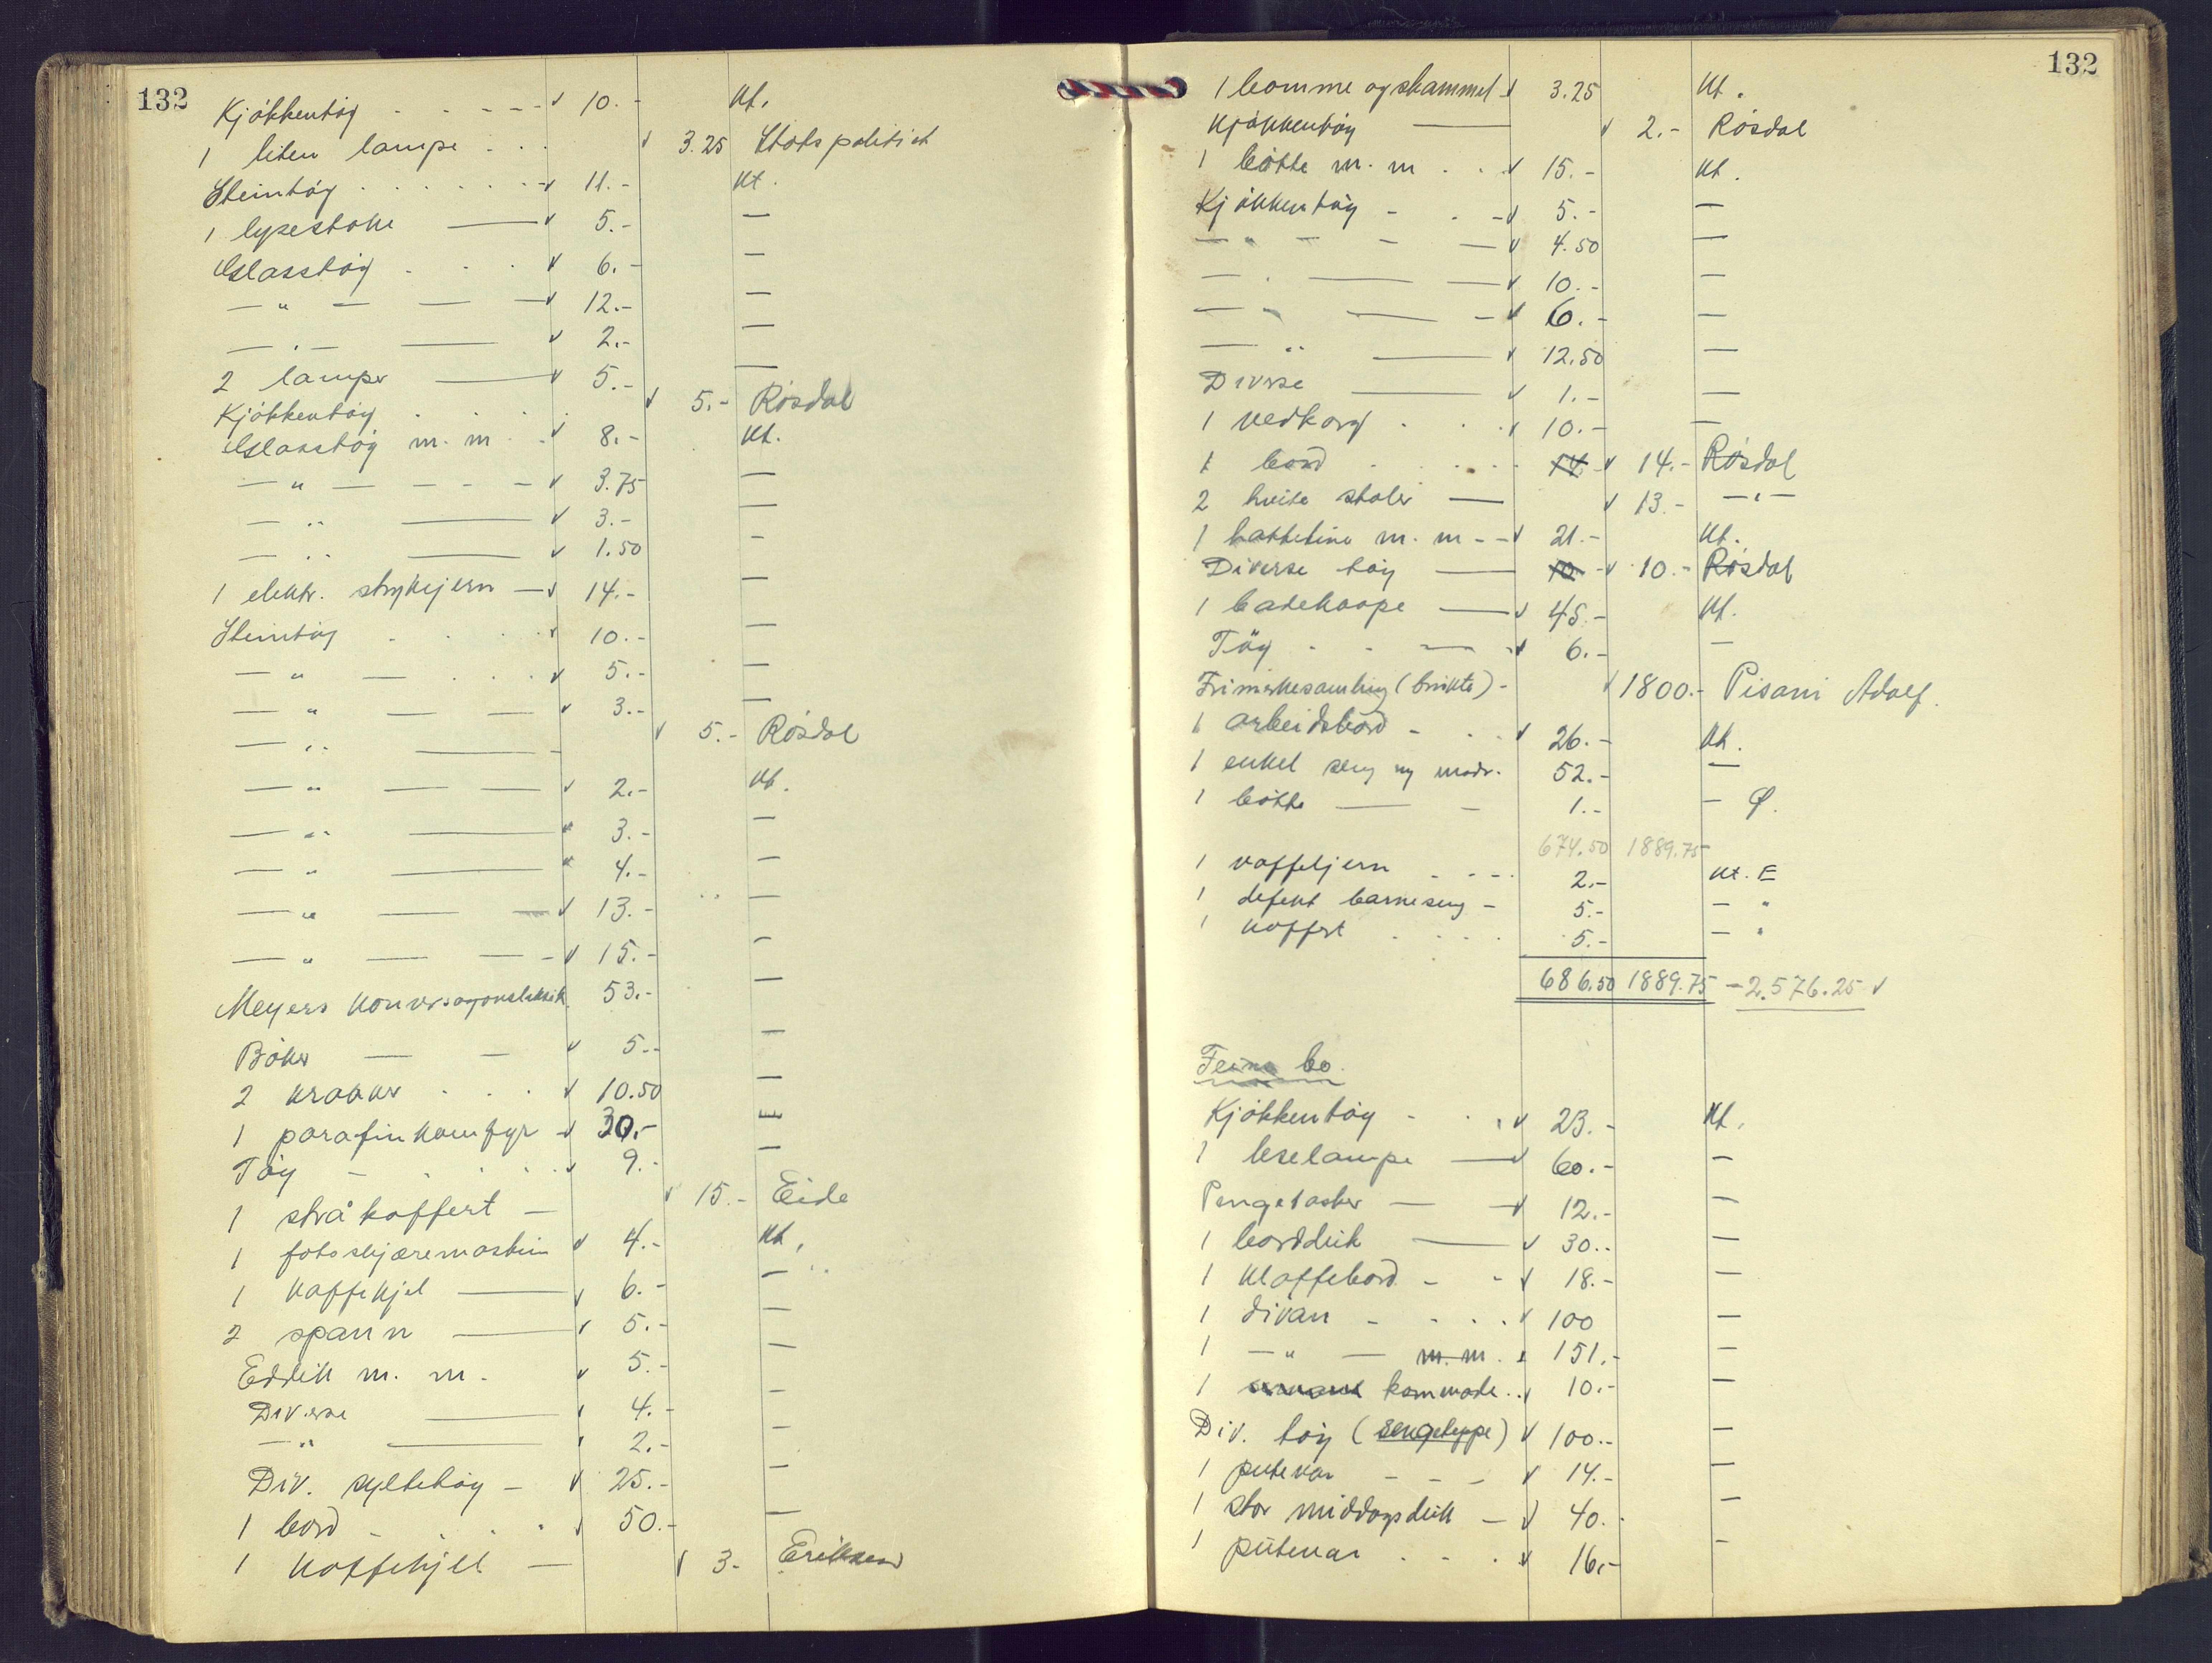 132
Kjøkkentøy - - - - - v 10.- Kt.
1 liten lampe - . . v 3.25 Statspolitiet
Steintøy . . . . . . v 11.- Kt.
1 lysestake — v 5.- —
Glasstøy . . . v 6.- —
— " — — — v 12.- —
— " — — v 2.- —
2 lamper — v 5.- —
Kjøkkentøy . . . . v 5.- Røsdal
Glasstøy m. m. . v 8.- Kt.
— " — - - - v 3.75 —
— " — v 3.- —
— " — v 1.50 —
1 elektr. strykejern — v 14.- —
Steintøy . . . . v 10.- —
— " — . . . v 5.- —
— " — — — v 3.- —
— " — - v 5.- Røsdal
— " — — — v 2.- Kt.
— " — v 3.- —
— " — v 4.- —
— " — — v 13.- —
— " — — - v 15.- —
Meyers konversasjonsleksik 53.- —
Bøker — — v 5.- —
2 krakker . . . v 10.50 —
1 parafinkomfyr - v 30.- —
Tøy - . . . . v 9.- —
1 stråkoffert - v 15.- Eide
1 fotoskjæremaskin v 4.- Kt.
1 kaffekjel — v 6.- —
2 spann — v 5.- —
Eddik m. m. - v 5.- —
Diverse — v 4.- —
— " — v 2.- —
Div. syltetøy - v 25.- —
1 bord - . . . v 50.- —
1 kaffekjel — v 3.- Eriksen
132
1 komme og skammel v 3.25 Kt.
Kjøkkentøy — v 2.- Røsdal
1 bøtte m. m . . v 15.- Kt.
Kjøkkentøy - . - v 5.- —
— " — - — v 4.50 —
— " — — v 10.- —
— " — - v 6.- —
— " — v 12.50 —
Diverse — v 1.- —
1 vedkorg . . . v 10.- —
1 bord . . . . 14 v 14.- Røsdal
2 hvite stoler — v 13.- — " —
1 m. m - - v 21.- Kt.
Diverse tøy — 10 - v 10.- Røsdal
1 badekaape — v 45.- Kt.
Tøy - - — v 6.- —
Frimerkesamling (brukte) - v 1800.- Pisani Adolf.
1 arbeidsbord - . . v 26.- Kt.
1 enkel seng ny madr. 52.- —
1 bøtte — - 1.- — Ø.
674.50 1889.75
1 vaffeljern . - - . 2.- Kt. E
1 defekt barneseng - 5.- — "
1 koffert . . . . 5.- — "
686.50 1889.75 - 2.576.25 v
bo.
Kjøkkentøy - . . v 23.- Kt.
1 leselampe — v 60.- —
Pengetasker — — v 12.- —
1 bordduk — v 30.- —
1 klaffebord - - v 18.- —
1 divan - - . . v 100 —
1 — " — m. m. v 151.- —
1 kommode . . v 10.- —
Div. tøy (sengeteppe) v 100.- —
1 putevar - - - v 14.- —
1 stor middagsduk — v 40.- —
1 putevar . - . v 16.- —